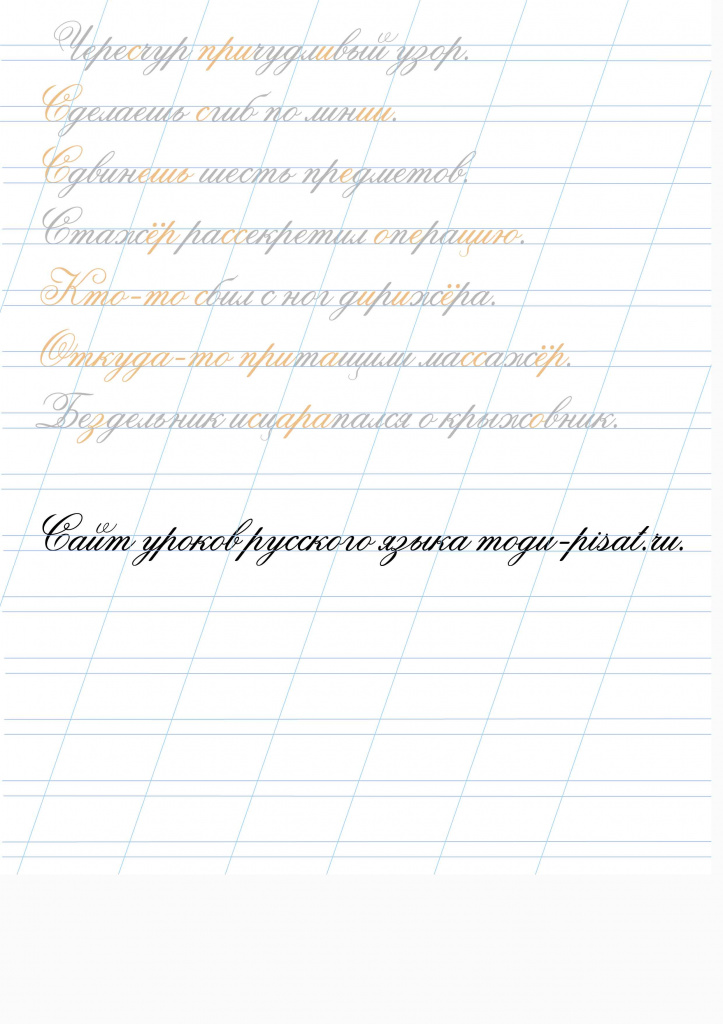 Чересчур причудливый узор.
Сделаешь сгиб по линии.
Сдвинешь шесть предметов.
Стажёр рассекретил операцию.
Кто-то сбил с ног дирижёра.
Откуда-то притащили массажёр.
Бездельник исцарапался о крыжовник.
Сайт уроков русского языка mogu-pisat.ru.